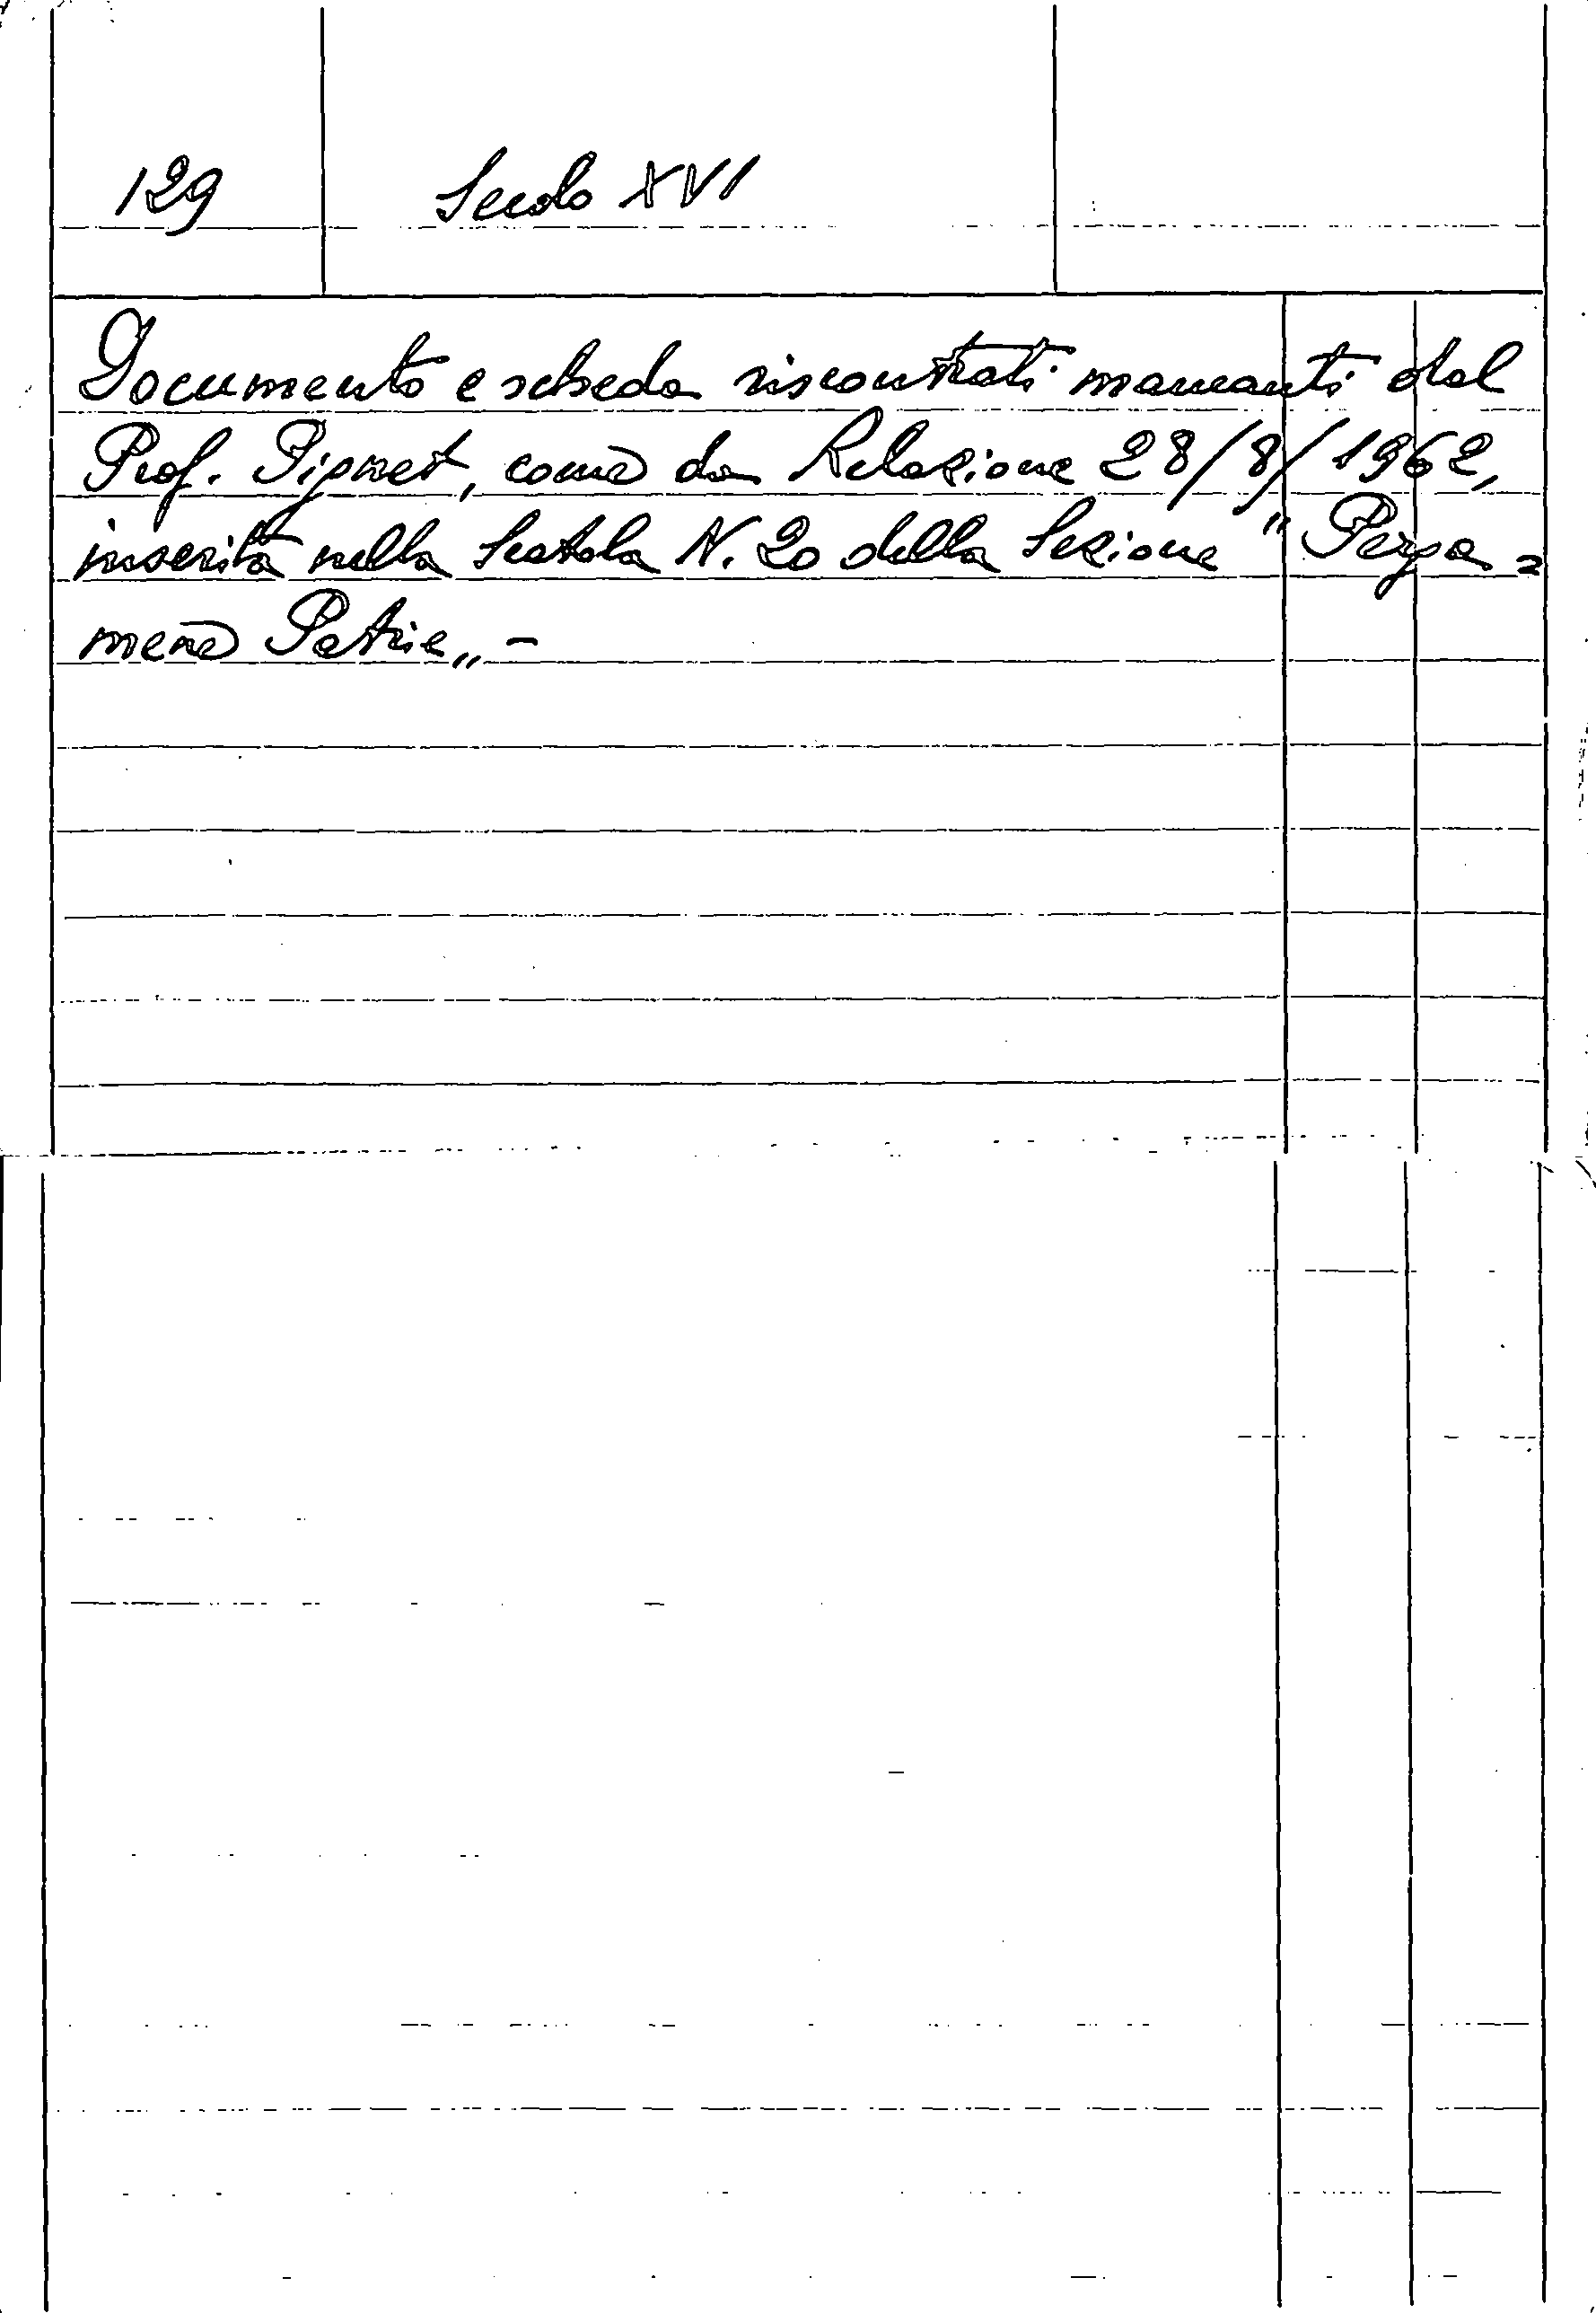 129 Secolo XVI
Documento e scheda riscontrati mancanti dal
Prof. Pignet, come da Relazione 28/8/1962,
inserita nella Scatola N. 20 della Sezione "Perga=
mene Patrie„ -